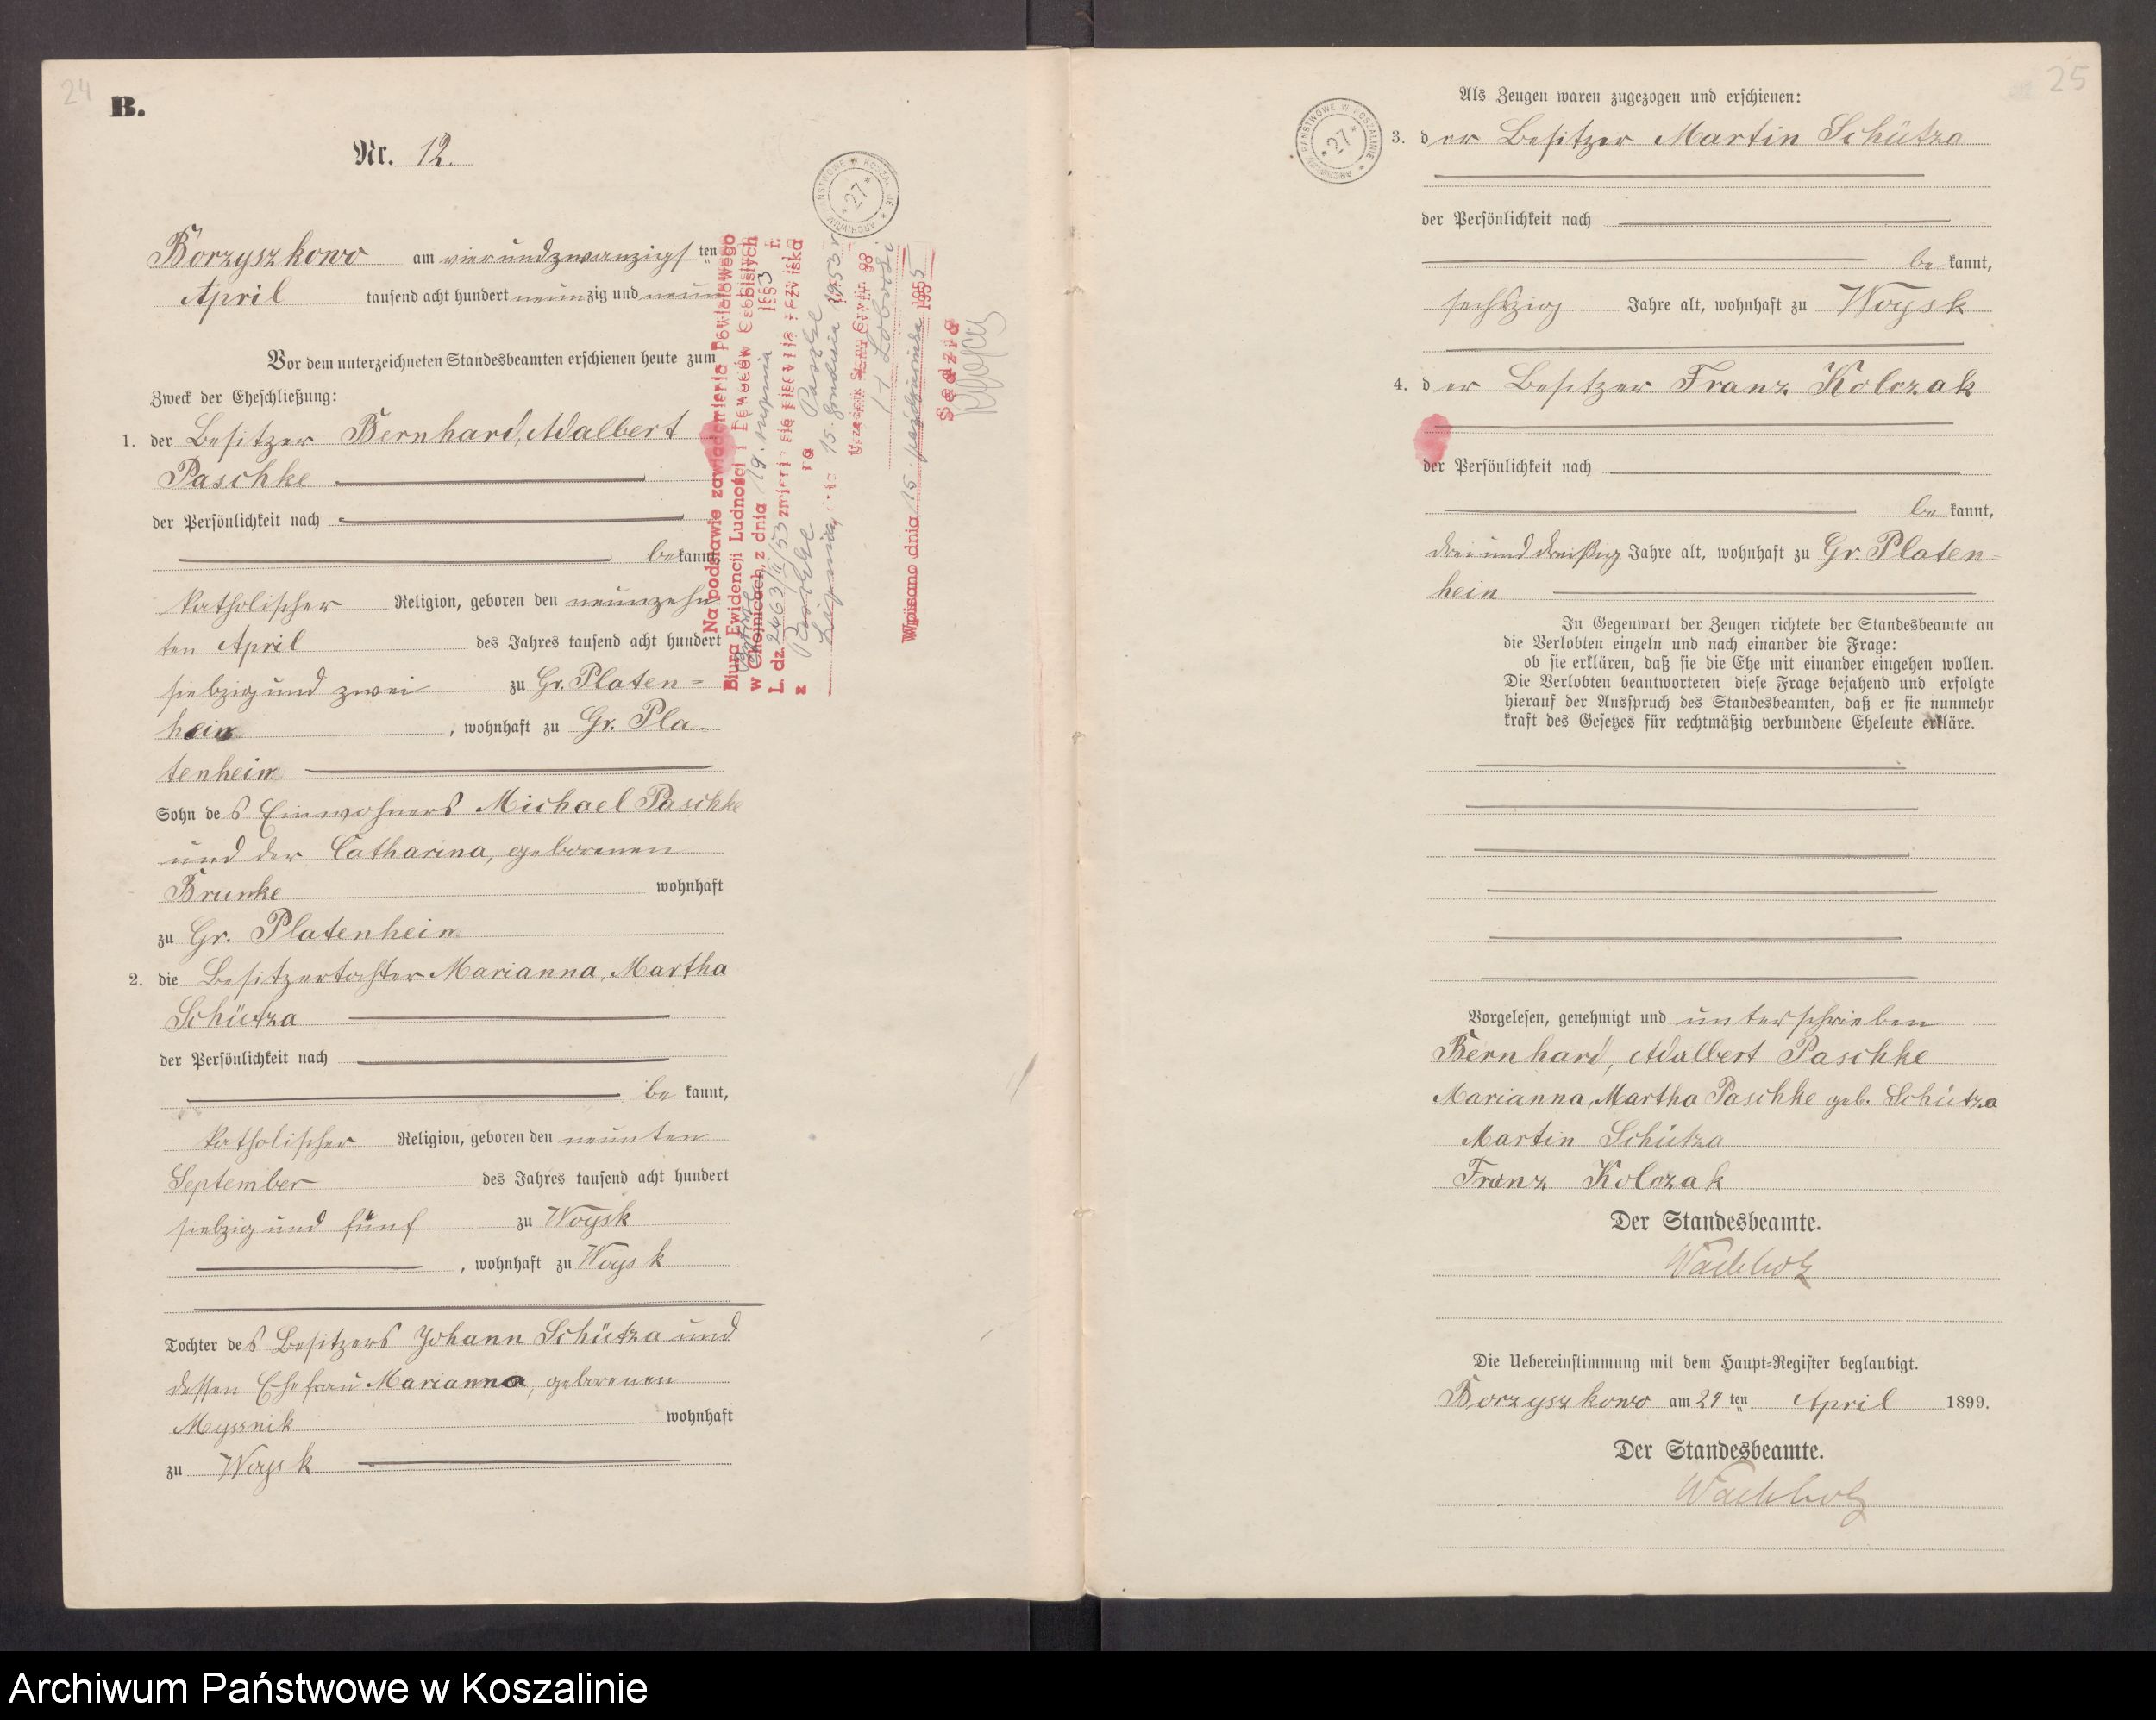 24
B.
Nr. 12.
Borzyszkowo am vierundzwanzigs ten
April tausend acht hundert neunzig und neun
Vor dem unterzeichneten Standesbeamten erschienen heute zum
Zweck der Eheschließung:
1. der Besitzer Bernhard, Adalbert
Paschke
der Persönlichkeit nach
be kannt,
katholischer Religion, geboren den neunzehn
ten April des Jahres tausend acht hundert
siebzig und zwei zu Gr. Platen=
heim, wohnhaft zu Gr. Pla=
tenheim
Sohn des Einwohners Michael Paschke
und der Catharina, geborenen
Brunke wohnhaft
zu Gr. Platenheim
2. die Besitzertochter Marianna, Martha
Schütza
der Persönlichkeit nach
be kannt,
katholischer Religion, geboren den neunten
September des Jahres tausend acht hundert
siebzig und fünf zu Woysk
, wohnhaft zu Woysk
Tochter des Besitzers Johann Schütza und
dessen Ehefrau Marianna, geborenen
Myssnik wohnhaft
zu Woysk
ARCHIWUM PAŃSTWOWE W KOSZALINIE
27
Na podstawie zawiadomienia Powiatowego
Biura Ewidencji Ludności i Dowodów Osobistych
w Chojnicach, z dnia 19. sierpnia 1953 r.
L. dz. 2463/II/53 zmienia się pisownię nazwiska
z Paschke na Paszke
15. grudnia 1953 r
Urzędnik Stanu Cywilnego
Wpisano dnia 15 października 1955
Sędzia
25
Als Zeugen waren zugezogen und erschienen:
ARCHIWUM PAŃSTWOWE W KOSZALINIE
27
3. der Besitzer Martin Schütza
der Persönlichkeit nach
be kannt,
sechszig Jahre alt, wohnhaft zu Woysk
4. der Besitzer Franz Kolczak
der Persönlichkeit nach
be kannt,
dreiunddreißig Jahre alt, wohnhaft zu Gr. Platen=
heim
In Gegenwart der Zeugen richtete der Standesbeamte an
die Verlobten einzeln und nach einander die Frage:
ob sie erklären, daß sie die Ehe mit einander eingehen wollen.
Die Verlobten beantworteten diese Frage bejahend und erfolgte
hierauf der Ausspruch des Standesbeamten, daß er sie nunmehr
kraft des Gesetzes für rechtmäßig verbundene Eheleute erkläre.
Vorgelesen, genehmigt und unterschrieben
Bernhard, Adalbert Paschke
Marianna, Martha Paschke geb. Schütza
Martin Schütza
Franz Kolczak
Der Standesbeamte.
Wachholz
Die Uebereinstimmung mit dem Haupt-Register beglaubigt.
Borzyszkowo am 24 ten April 1899.
Der Standesbeamte.
Wachholz
Archiwum Państwowe w Koszalinie